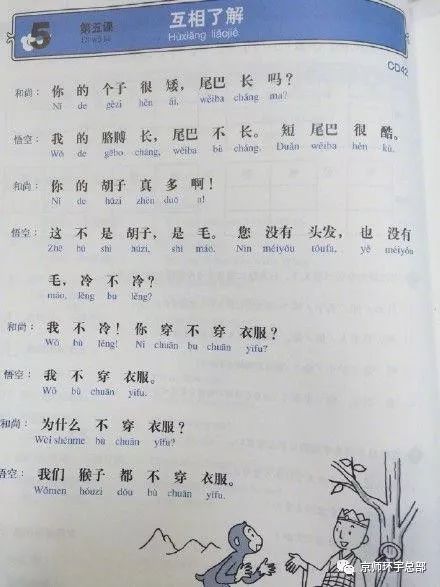 5 第五课 互相了解
Dì wǔ kè Hùxiāng liǎojiě
CD42
和尚： 你 的 个子 很 矮， 尾巴 长 吗？
Nǐ de gèzi hěn ǎi, wěiba cháng ma?
悟空： 我 的 胳膊 长， 尾巴 不 长。 短 尾巴 很 酷。
Wǒ de gēbo cháng, wěiba bù cháng. Duǎn wěiba hěn kù.
和尚： 你 的 胡子 真 多 啊！
Nǐ de húzi zhēn duō a!
悟空： 这 不 是 胡子， 是 毛。 您 没有 头发， 也 没有
Zhè bú shì húzi, shì máo. Nín méiyǒu tóufa, yě méiyǒu
毛， 冷 不 冷？
máo, lěng bu lěng?
和尚： 我 不 冷！ 你 穿 不 穿 衣服？
Wǒ bù lěng! Nǐ chuān bu chuān yīfu?
悟空： 我 不 穿 衣服。
Wǒ bù chuān yīfu.
和尚： 为什么 不 穿 衣服？
Wèi shénme bù chuān yīfu?
悟空： 我们 猴子 都 不 穿 衣服。
Wǒmen hóuzi dōu bù chuān yīfu.
京师环宇总部